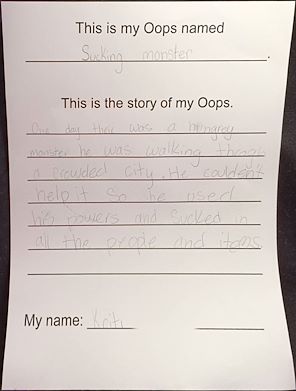 This is my Oops named
Sucking monster.
This is the story of my Oops.
One day their was a hungrey
monster he was walking through
a crowded city. He couldn't
help it so he used
his powers and sucked in
all the people and items
My name: Kriti